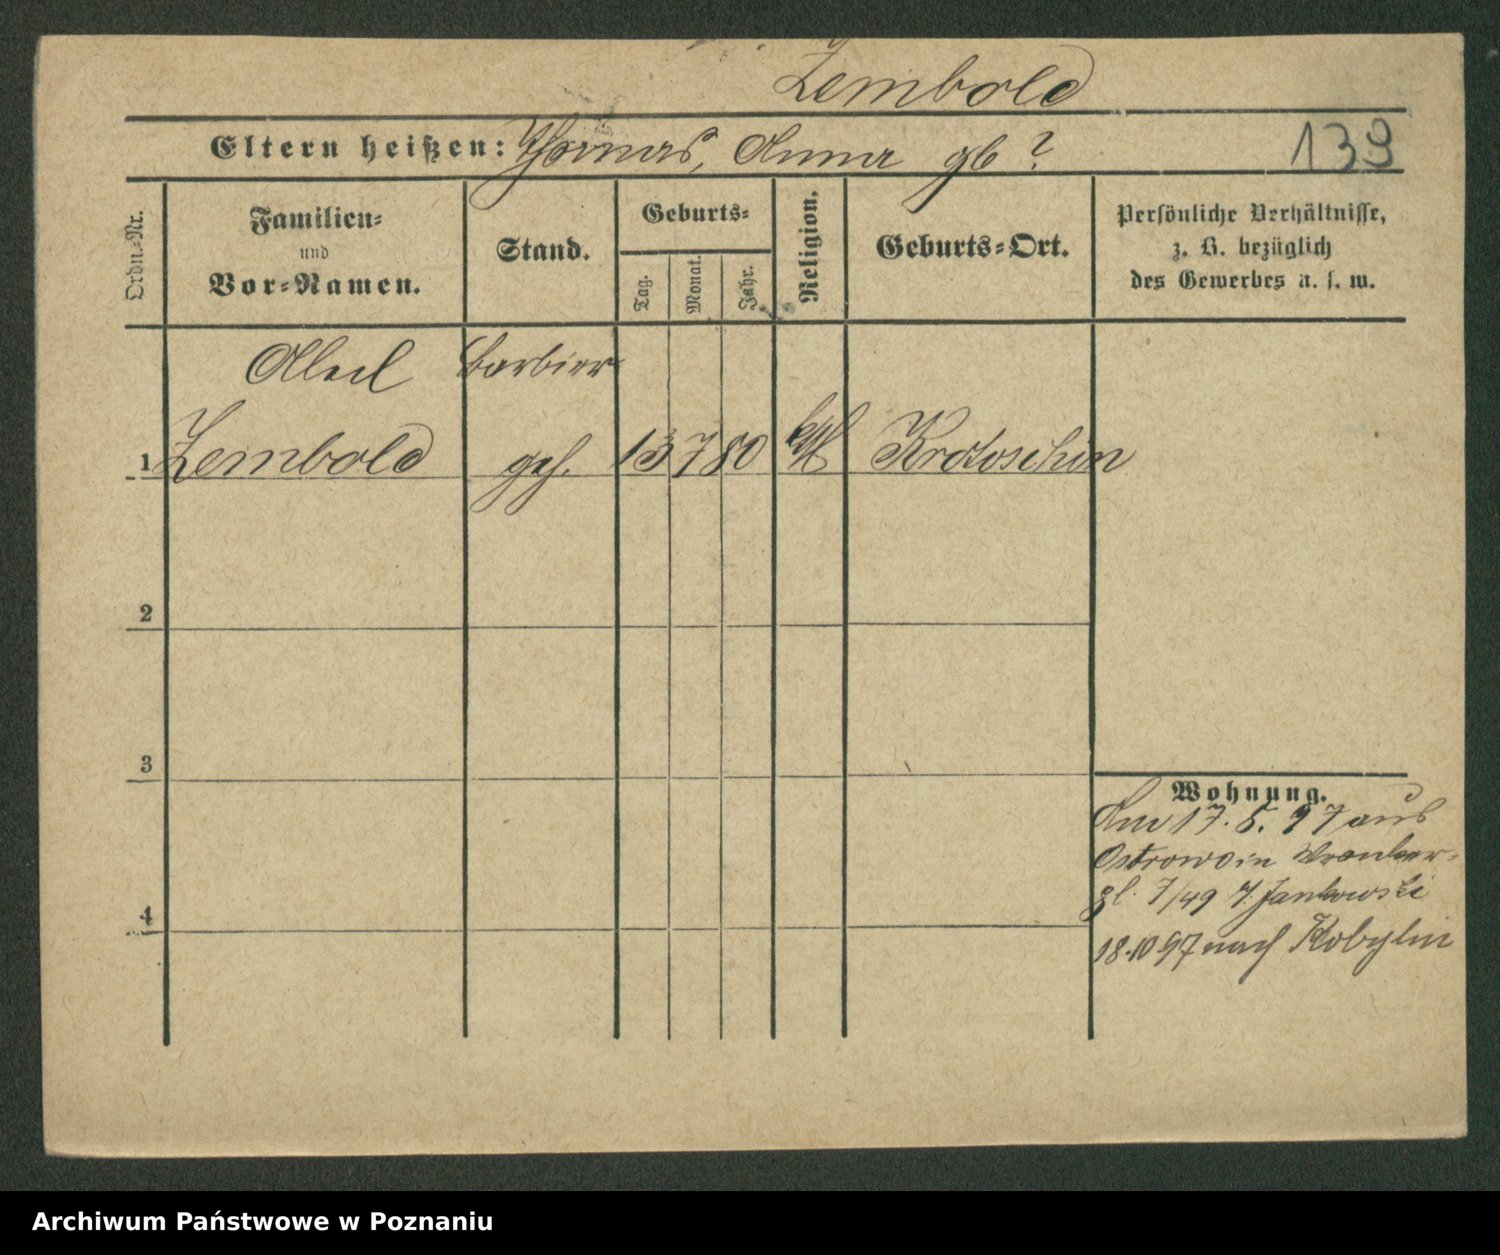 Zembold
Eltern heißen: Thomas, Anna gb ?
139
Ordn.-Nr.
Familien-
und
Vor-Namen.
Stand.
Geburts-
Tag.
Monat.
Jahr.
Religion.
Geburts-Ort.
Persönliche Verhältnisse,
z. B. bezüglich
des Gewerbes u. s. w.
barbier
1 Zembold geh. 13 7 80 kth Krotoschin
2
3
4
Wohnung.
17. 5. 97 aus
Ostrowo in
7/49 Jankowski
18.10 97 nach Kobylin
Archiwum Państwowe w Poznaniu